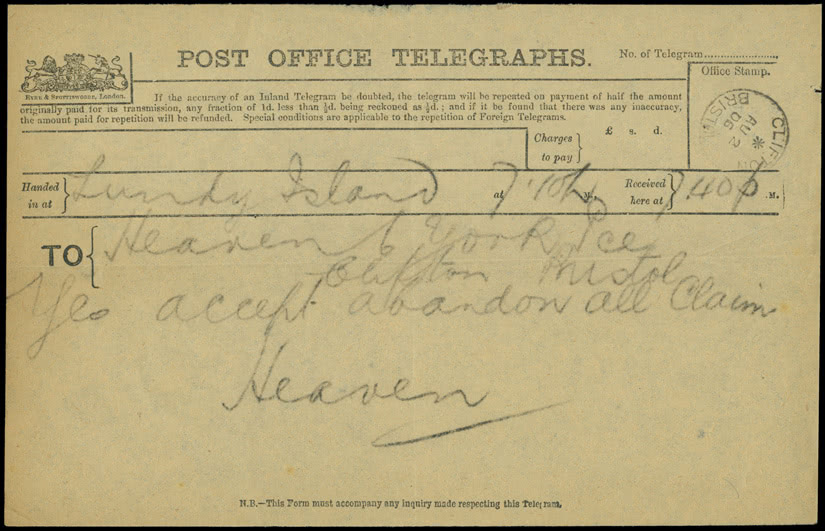 POST OFFICE TELEGRAPHS.
No. of Telegram
Office Stamp.
EYRE & SPOTTISWOODE, London.
If the accuracy of an Inland Telegram be doubted, the telegram will be repeated on payment of half the amount
originally paid for its transmission, any fraction of 1d. less than ½d. being reckoned as ½d.; and if it be found that there was any inaccuracy,
the amount paid for repetition will be refunded. Special conditions are applicable to the repetition of Foreign Telegrams.
CLIFTON BRISTOL
AU 2
06
Charges to pay
£ s. d.
Handed in at Lundy Island at 7.10 M. Received here at 7.40 p .M.
TO Heaven 6 York
Clifton Bristol
Yes accept abandon all Claim
Heaven
N.B.—This Form must accompany any inquiry made respecting this Telegram.